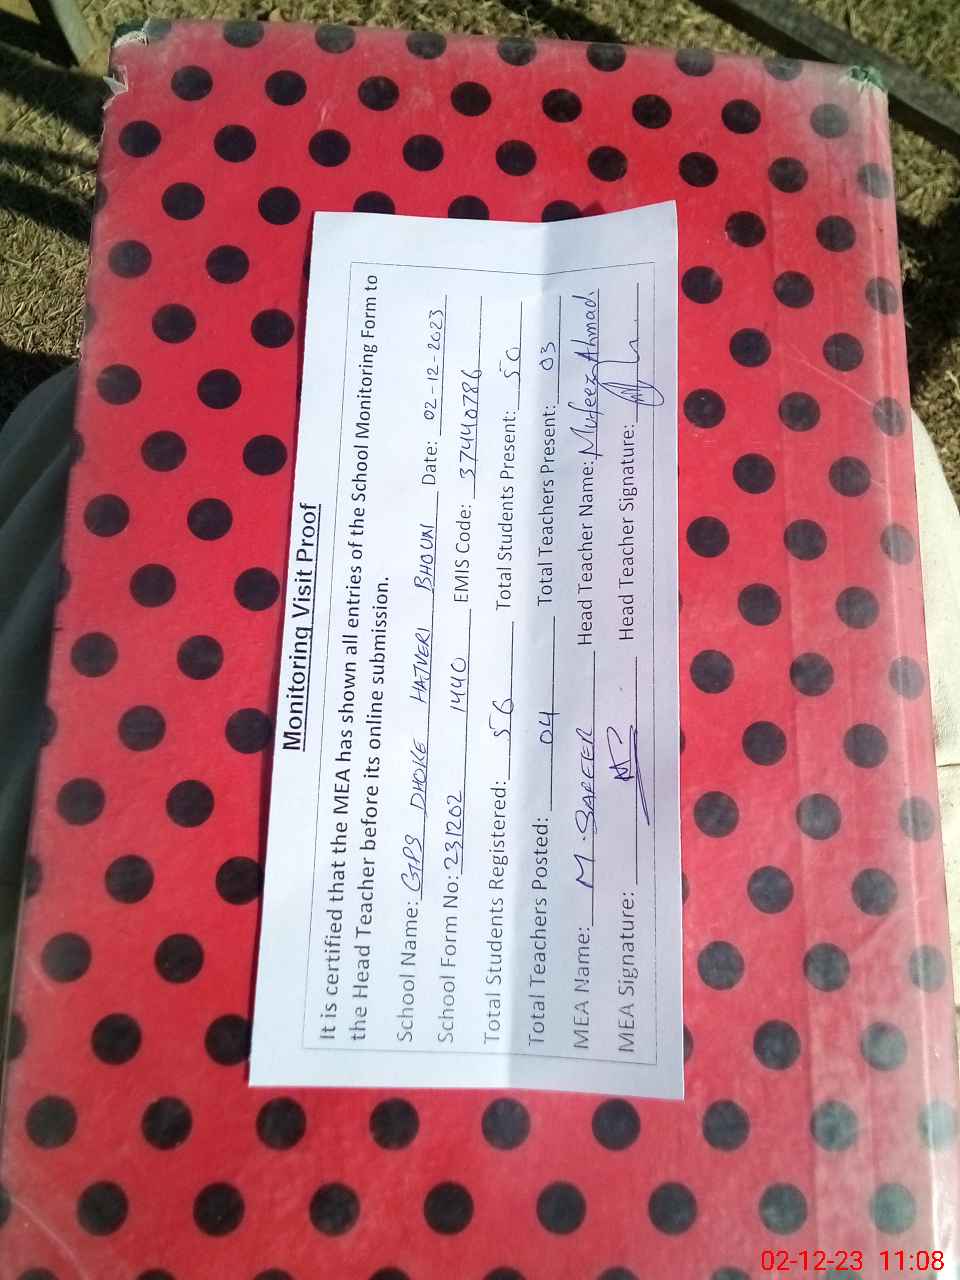 Monitoring Visit Proof
It is certified that the MEA has shown all entries of the School Monitoring Form to
the Head Teacher before its online submission.
School Name: GPS DHOKE HAJVERI BHOUN Date: 02-12-2023
School Form No: 231202 1440 EMIS Code: 37440786
Total Students Registered: 56 Total Students Present: 50
Total Teachers Posted: 04 Total Teachers Present: 03
MEA Name: M. SAFEER Head Teacher Name: Mufeez Ahmad
MEA Signature: Head Teacher Signature:
02-12-23 11:08